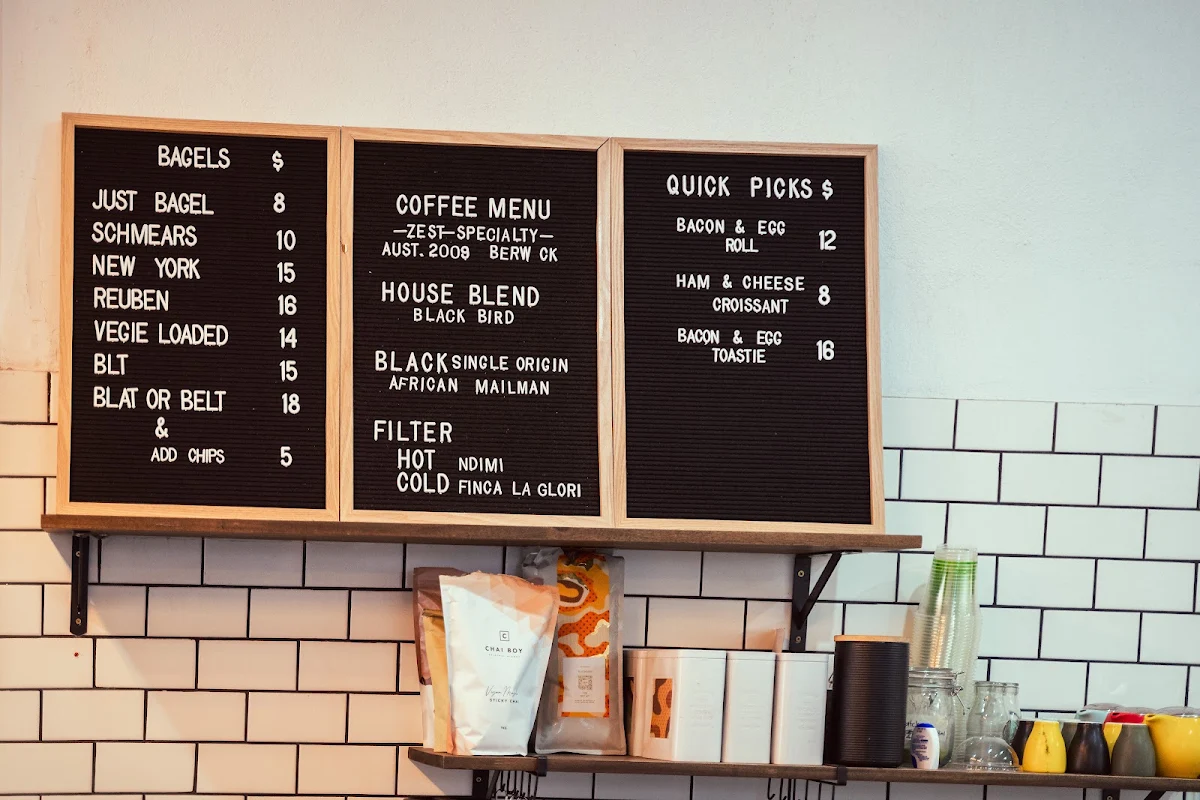 BAGELS $
JUST BAGEL 8
SCHMEARS 10
NEW YORK 15
REUBEN 16
VEGIE LOADED 14
BLT 15
BLAT OR BELT 18
&
ADD CHIPS 5
COFFEE MENU
—ZEST—SPECIALTY—
AUST. 2009 BERW CK
HOUSE BLEND
BLACK BIRD
BLACK SINGLE ORIGIN
AFRICAN MAILMAN
FILTER
HOT NDIMI
COLD FINCA LA GLORI
QUICK PICKS $
BACON & EGG
ROLL 12
HAM & CHEESE
CROISSANT 8
BACON & EGG
TOASTIE 16
C
CHAI BOY
STICKY CHAI